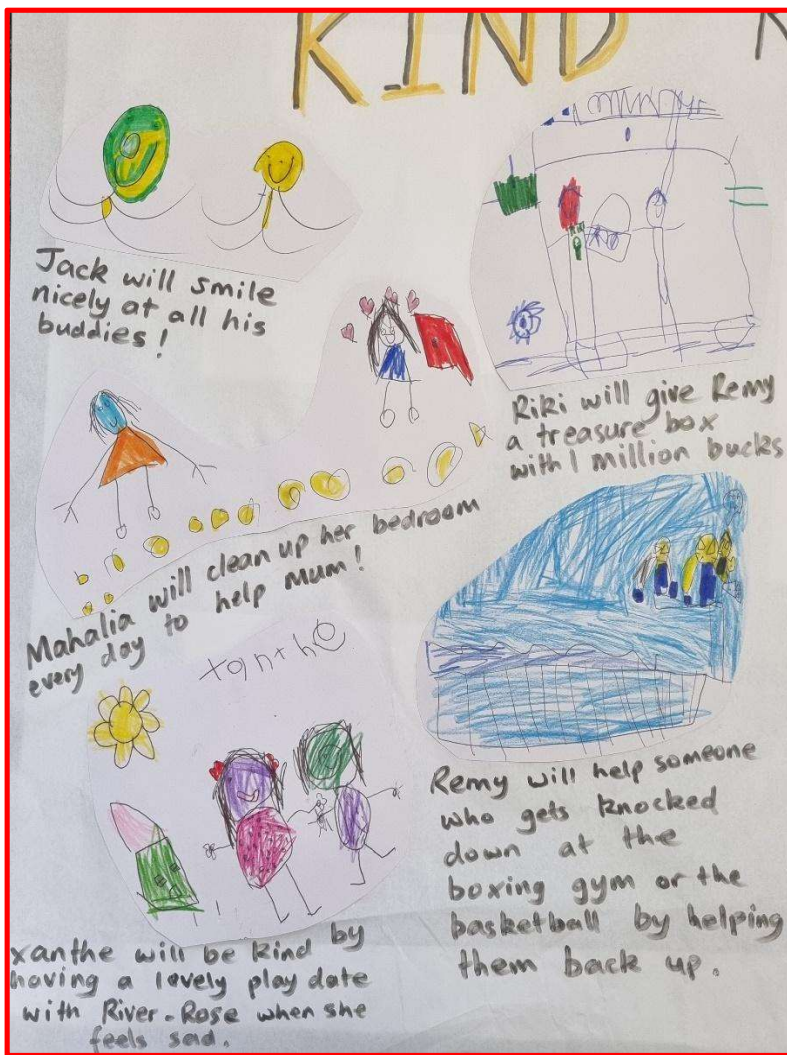 KIND
Jack will smile
nicely at all his
buddies!
Riki will give Remy
a treasure box
with 1 million bucks
Mahalia will clean up her bedroom
every day to help mum!
xanthe
Remy will help someone
who gets knocked
down at the
boxing gym or the
basketball by helping
them back up.
xanthe will be kind by
having a lovely play date
with River-Rose when she
feels sad.